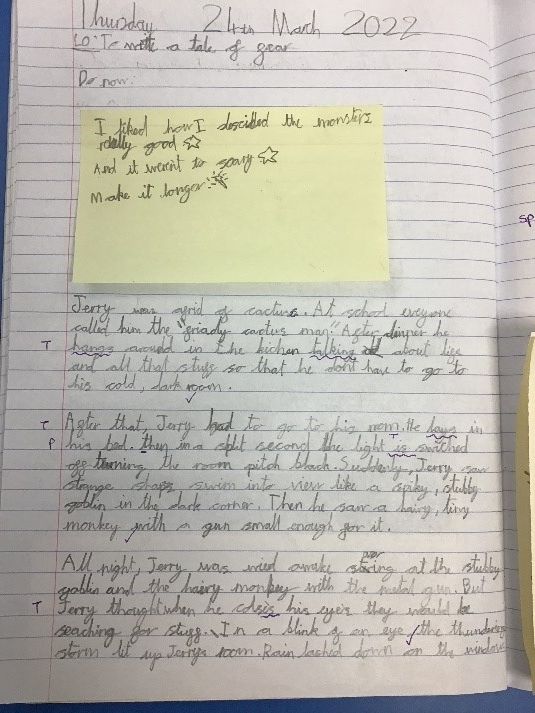 Thursday 24th March 2022
LO: To write a tale of fear
Do now:
I liked how I descibed the monsters
really good
And it wernt to scary
Make it longer
Jerry was afrid of cactus. At school eveyone
called him the "friady cactus man." After dinner he
T hangs around in the kichen talking about life
and all that stuff so that he dont have to go to
his cold, dark room.
T After that, Jerry had to go to his room. He lays in
P his bed. then in a split second the light is switched
off turning the room pitch black. Suddenly, Jerry saw
strange shaps swim into view like a spiky, stubby
goblin in the dark corner. Then he saw a hairy, tiny
monkey with a gun small enough for it.
over
All night, Jerry was wied awake staring at the stubby
goblin and the hairy monkey with the metal gun. But
T Jerry thought when he coliss his eyes they would be
seaching for stuff. In a blink of an eye the thunder
storm lit up Jerrys room. Rain lashed down on the window
sp